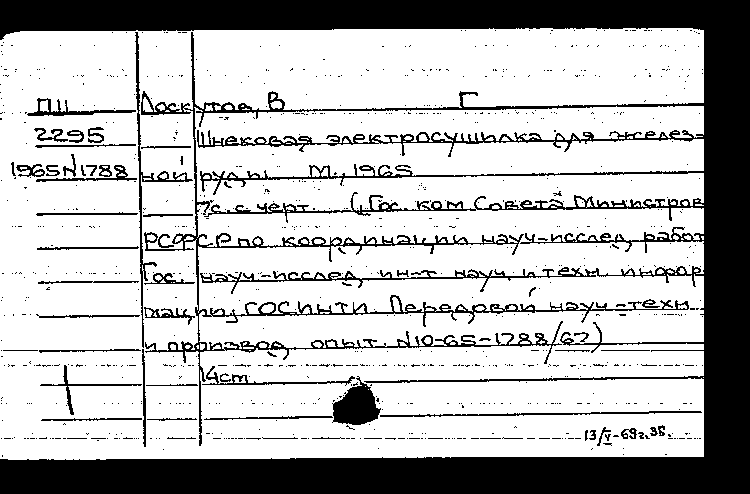 ПШ Лоскутов, В Г
2295 Шнековая электросушилка для желез-
1965 N1788 ной руды М., 1965
7с. с черт. (Гос. ком Совета Министров
РСФСР по координации науч-исслед, работ
Гос. науч-исслед, ин-т науч. и техн. инфор-
мации, ГОСИНТИ. Передовой науч-техн
и производ, опыт. N10-65-1788/62)
14cm.
13/V-69г. 35.